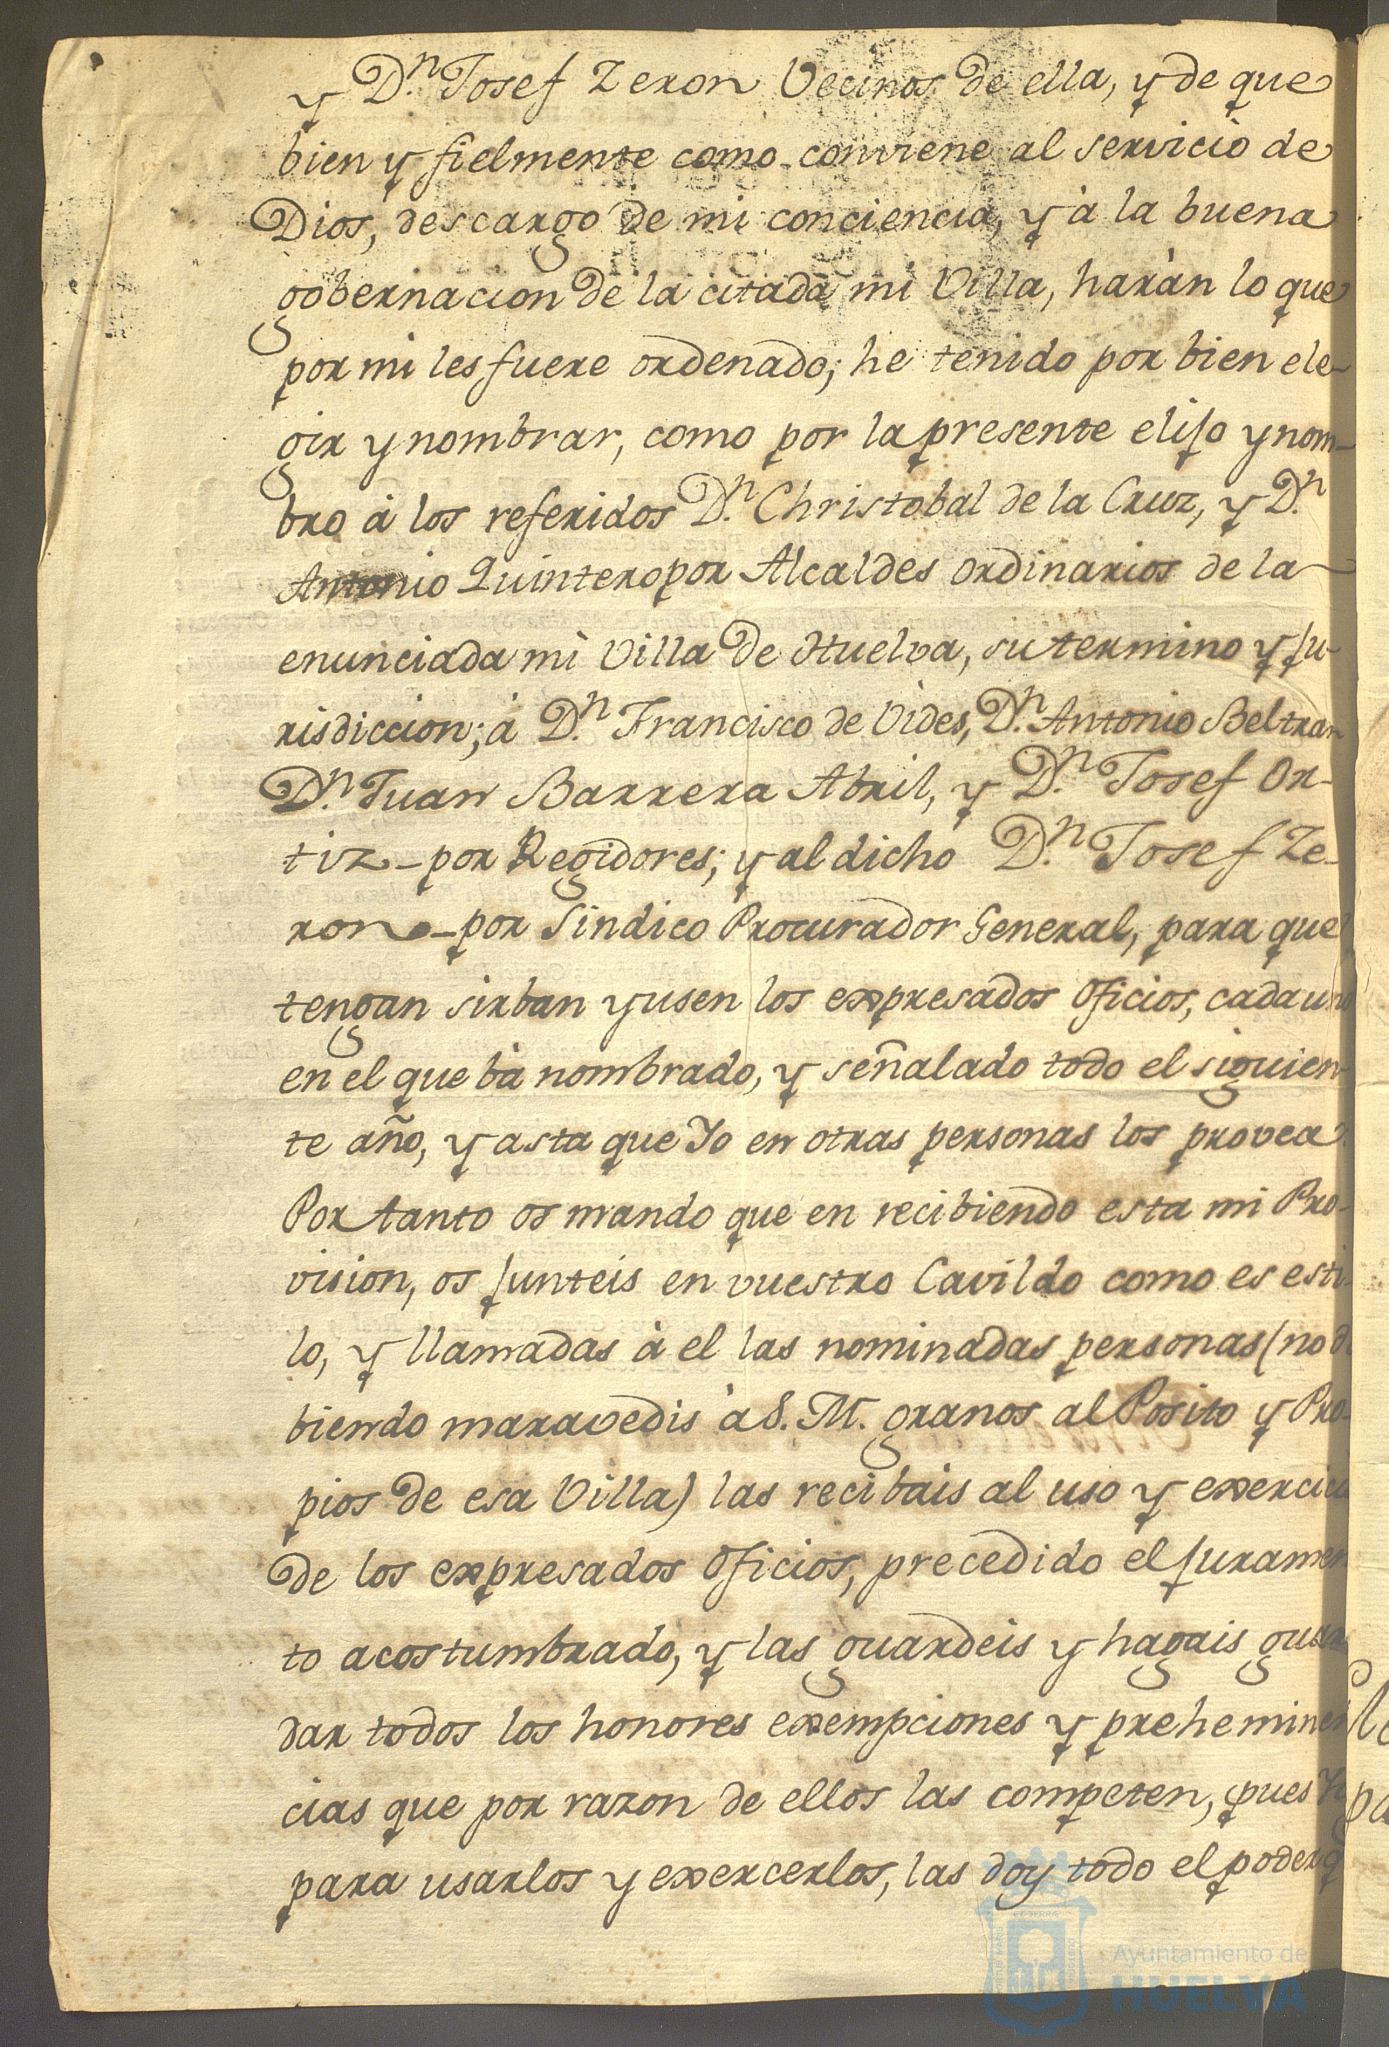 y D.ⁿ Josef Zeron Vecinos de ella, y de que
bien y fielmente como conviene al servicio de
Dios, descargo de mi conciencia, y à la buena
gobernacion de la citada mi Villa, haràn lo que
por mi les fuere ordenado; he tenido por bien ele-
gir y nombrar, como por la presente elijo y nom-
bro à los referidos D.ⁿ Christobal de la Cruz, y D.ⁿ
Antonio Quintero por Alcaldes ordinarios de la
enunciada mi Villa de Huelva, su termino y Ju-
risdiccion; à D.ⁿ Francisco de Vides, D.ⁿ Antonio Beltran
D.ⁿ Juan Barrera Abril, y D.ⁿ Josef Or-
tiz - por Regidores; y al dicho D.ⁿ Josef Ze-
ron - por Sindico Procurador General, para que
tengan sirban y usen los expresados Oficios, cada uno
en el que bà nombrado, y señalado todo el siguien-
te año, y asta que Yo en otras personas los provea
Por tanto os mando que en recibiendo esta mi Pro-
vision, os Junteis en vuestro Cavildo como es esti-
lo, y llamadas à el las nominadas personas (no de
biendo maravedis à S. M. granos al Posito y Pro-
pios de esa Villa) las recibàis al uso y exercicio
de los expresados Oficios, precedido el Juramen
to acostumbrado, y las guardeis y hagais guar
dar todos los honores exempciones y preheminen
cias que por razon de ellos las competen, pues Yo
para usarlos y exercerlos, las doy todo el poder q
Ayuntamiento de
HUELVA